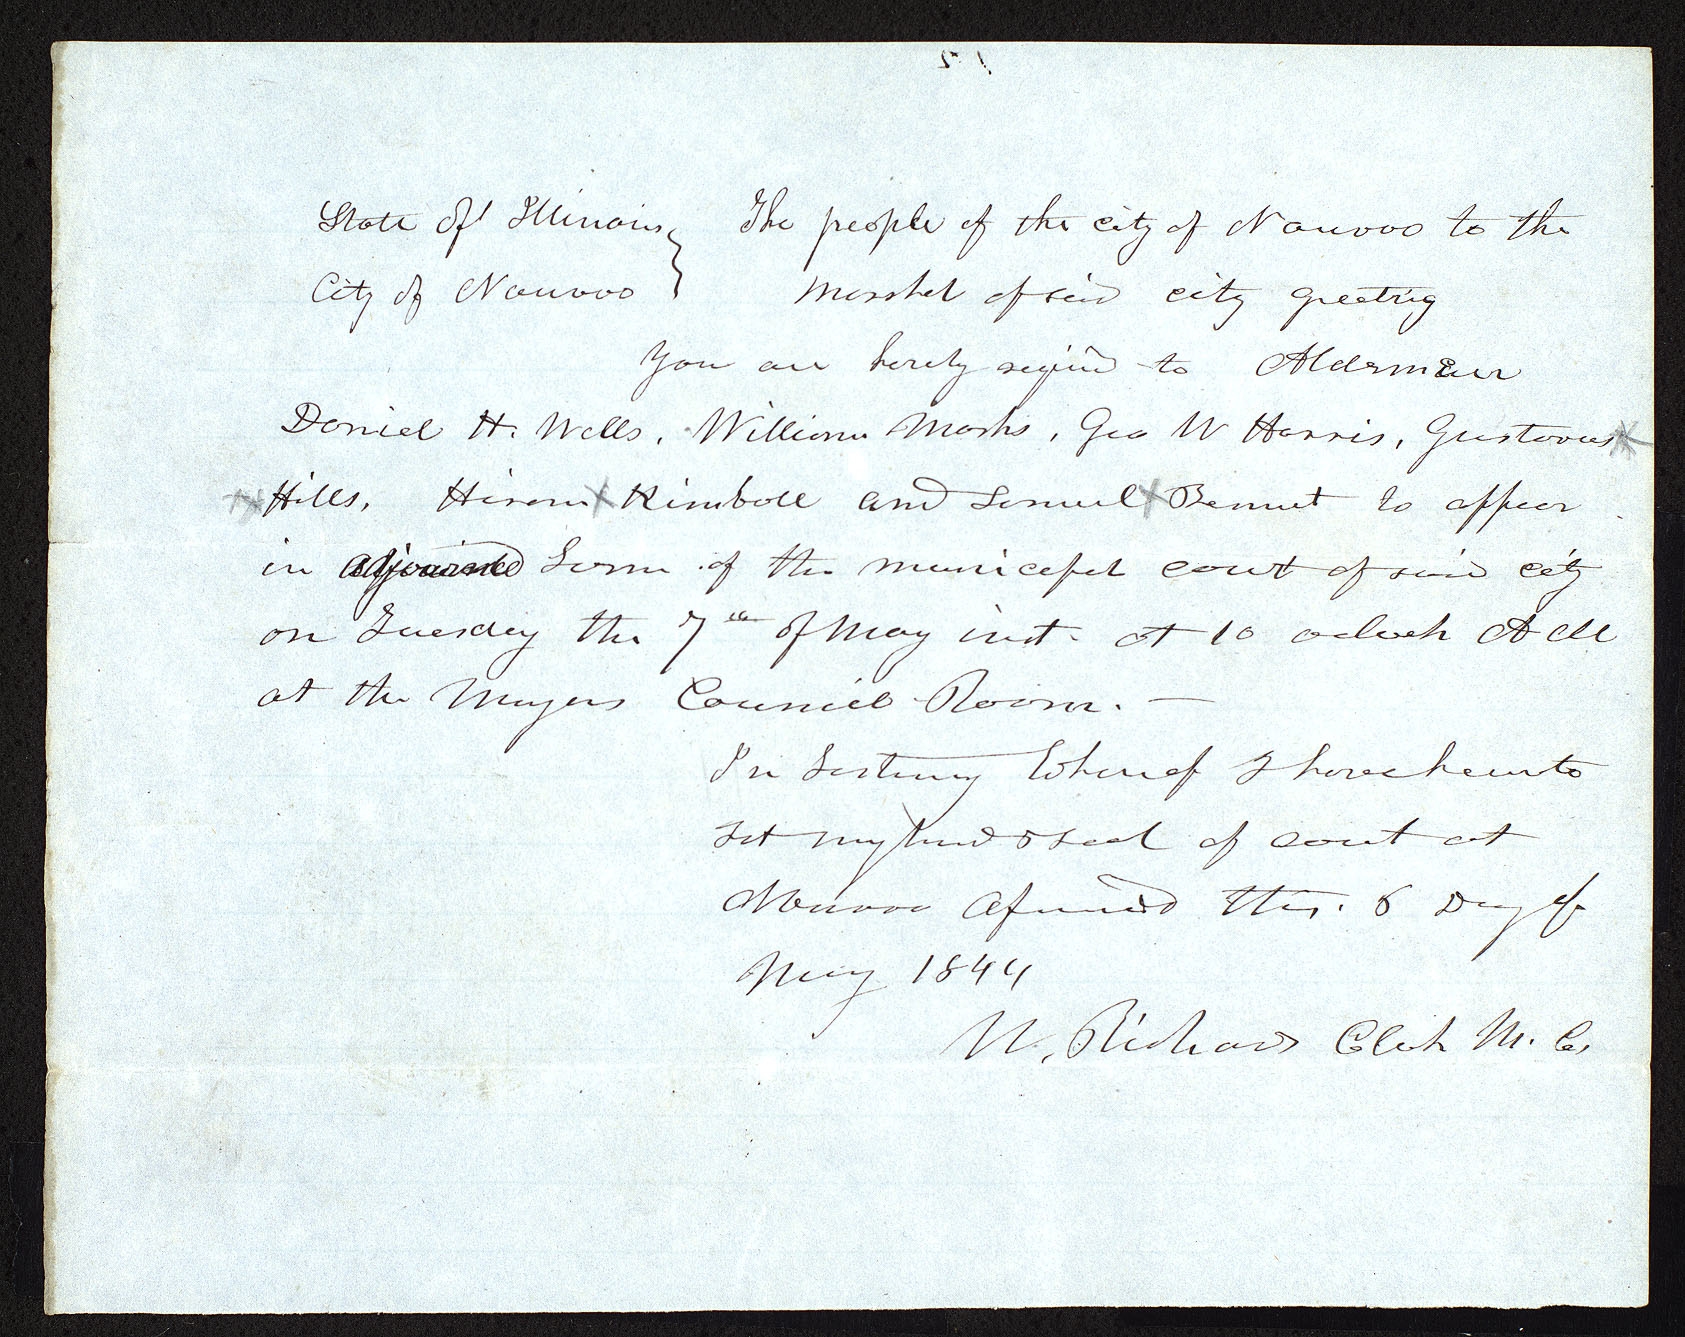 State Of Illinois } The people of the city of Nauvoo to the
City of Nauvoo } Marshal of said city greeting
You are hereby requird to Aldermen
Daniel H. Wells, William Marks, Geo W Harris, Gustavus
Hills, Hiram Kimball and Samuel Bennet to appear
in adjourned Term of the municipal court of said city
on Tuesday the 7th of May inst. at 10 oclock A M
at the Mayors Council Room. —
In testimony Whereof I have hereunto
set my hand & seal of court at
Nauvoo aforesaid this. 6 Day of
May 1844
W. Richards Clerk M. C.